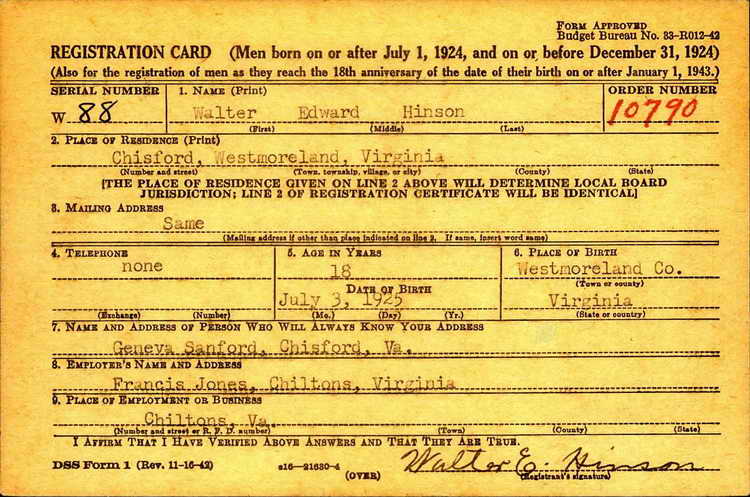 FORM APPROVED
Budget Bureau No. 33-R012-42
REGISTRATION CARD (Men born on or after July 1, 1924, and on or before December 31, 1924)
(Also for the registration of men as they reach the 18th anniversary of the date of their birth on or after January 1, 1943.)
SERIAL NUMBER 1. NAME (Print) ORDER NUMBER
W 88 Walter Edward Hinson 10790
(First) (Middle) (Last)
2. PLACE OF RESIDENCE (Print)
Chisford, Westmoreland, Virginia
(Number and street) (Town, township, village, or city) (County) (State)
[THE PLACE OF RESIDENCE GIVEN ON LINE 2 ABOVE WILL DETERMINE LOCAL BOARD
JURISDICTION; LINE 2 OF REGISTRATION CERTIFICATE WILL BE IDENTICAL]
3. MAILING ADDRESS
Same
(Mailing address if other than place indicated on line 2. If same, insert word same)
4. TELEPHONE 5. AGE IN YEARS 6. PLACE OF BIRTH
none 18 Westmoreland Co.
DATE OF BIRTH (Town or county)
July 3, 1925 Virginia
(Exchange) (Number) (Mo.) (Day) (Yr.) (State or country)
7. NAME AND ADDRESS OF PERSON WHO WILL ALWAYS KNOW YOUR ADDRESS
Geneva Sanford, Chisford, Va.
8. EMPLOYER'S NAME AND ADDRESS
Francis Jones, Chiltons, Virginia
9. PLACE OF EMPLOYMENT OR BUSINESS
Chiltons, Va.
(Number and street or R. F. D. number) (Town) (County) (State)
I AFFIRM THAT I HAVE VERIFIED ABOVE ANSWERS AND THAT THEY ARE TRUE.
DSS Form 1 (Rev. 11-16-42) s16—21630-4 Walter E. Hinson
(OVER) (Registrant's signature)